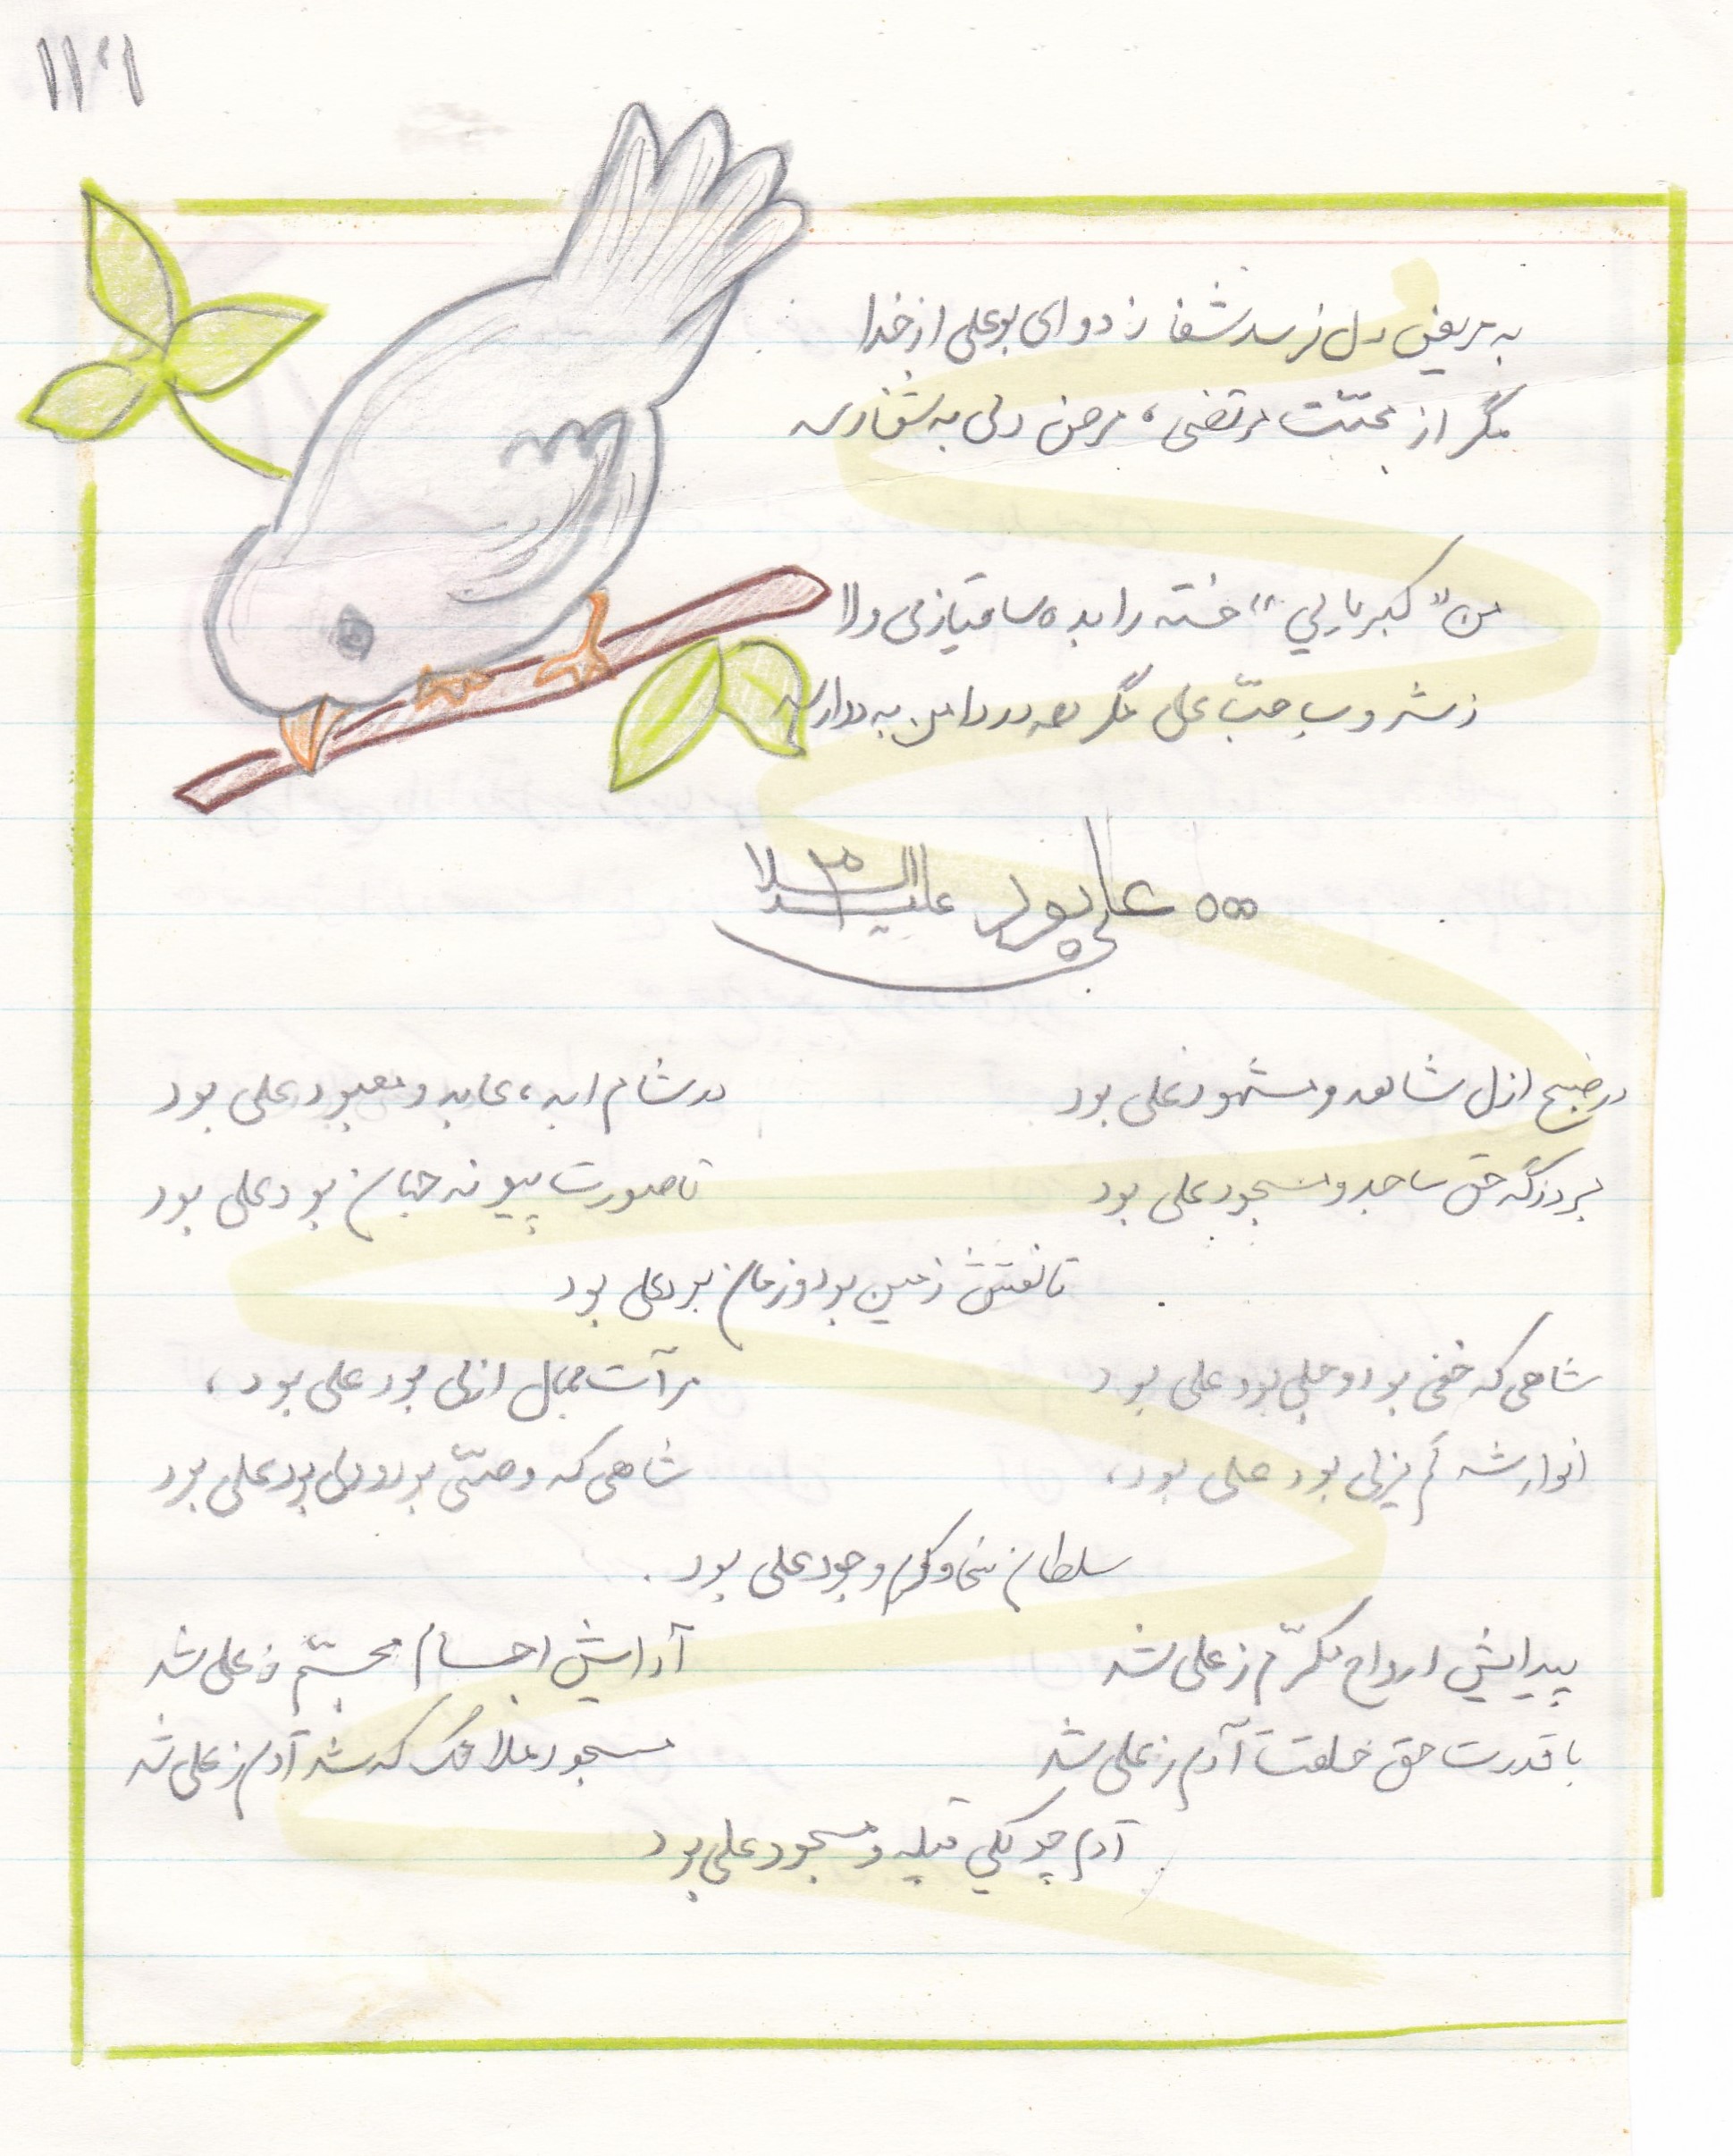 ۱۱۲۱
به مریض دل نرسد شفا ز دوای بوعلی از خدا
مگر از محبّت مرتضی، مرض دلی به شفا رسد
من "کبریایی" خسته را بده ساقیا ز می ولا
ز مشروب حبّ علی مگر همه درد من به دوا رسد
علی بود علیه السلام
در صبح ازل شاهد و مشهود علی بود
در شام ابد، عابد و معبود علی بود
بر درگه حق ساجد و مسجود علی بود
تا صورت پیوند جهان بود علی بود
تا نقش زمین بود و زمان بود علی بود
شاهی که خفی بود و جلی بود علی بود
مرآت جمال ازلی بود علی بود،
انوار شه لم یزلی بود علی بود،
شاهی که وصیّ بود و ولی بود علی بود
سلطان سخا و کرم و جود علی بود.
پیدایش ارواح مکرّم ز علی شد
آرایش اجسام مجسّم ز علی شد
با قدرت حق خلقت آدم ز علی شد
مسجود ملائک که شد آدم ز علی شد
آدم چو یکی قبله و مسجود علی بود